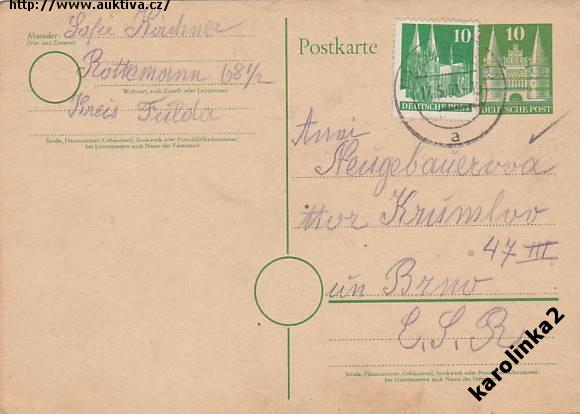 http://www.auktiva.cz/
Absender: Sofie Kirchner
(Vor- und Zuname)
Rottemann 68 1/2
Wohnort, auch Zustell- oder Leitpostamt
Kreis Fulda
Straße, Hausnummer, Gebäudeteil, Stockwerk oder Postschließfachnummer;
bei Untermietern auch Name des Vermieters
Postkarte
10
DEUTSCHE POST
10
DEUTSCHE POST
a
Anni
Neugebauerova
Mor Krumlov
47 III
un Brno
C. S. R.
Straße, Hausnummer, Gebäudeteil, Stockwerk oder Postschließfachnummer;
bei Untermietern auch Name des Vermieters
karolinka2